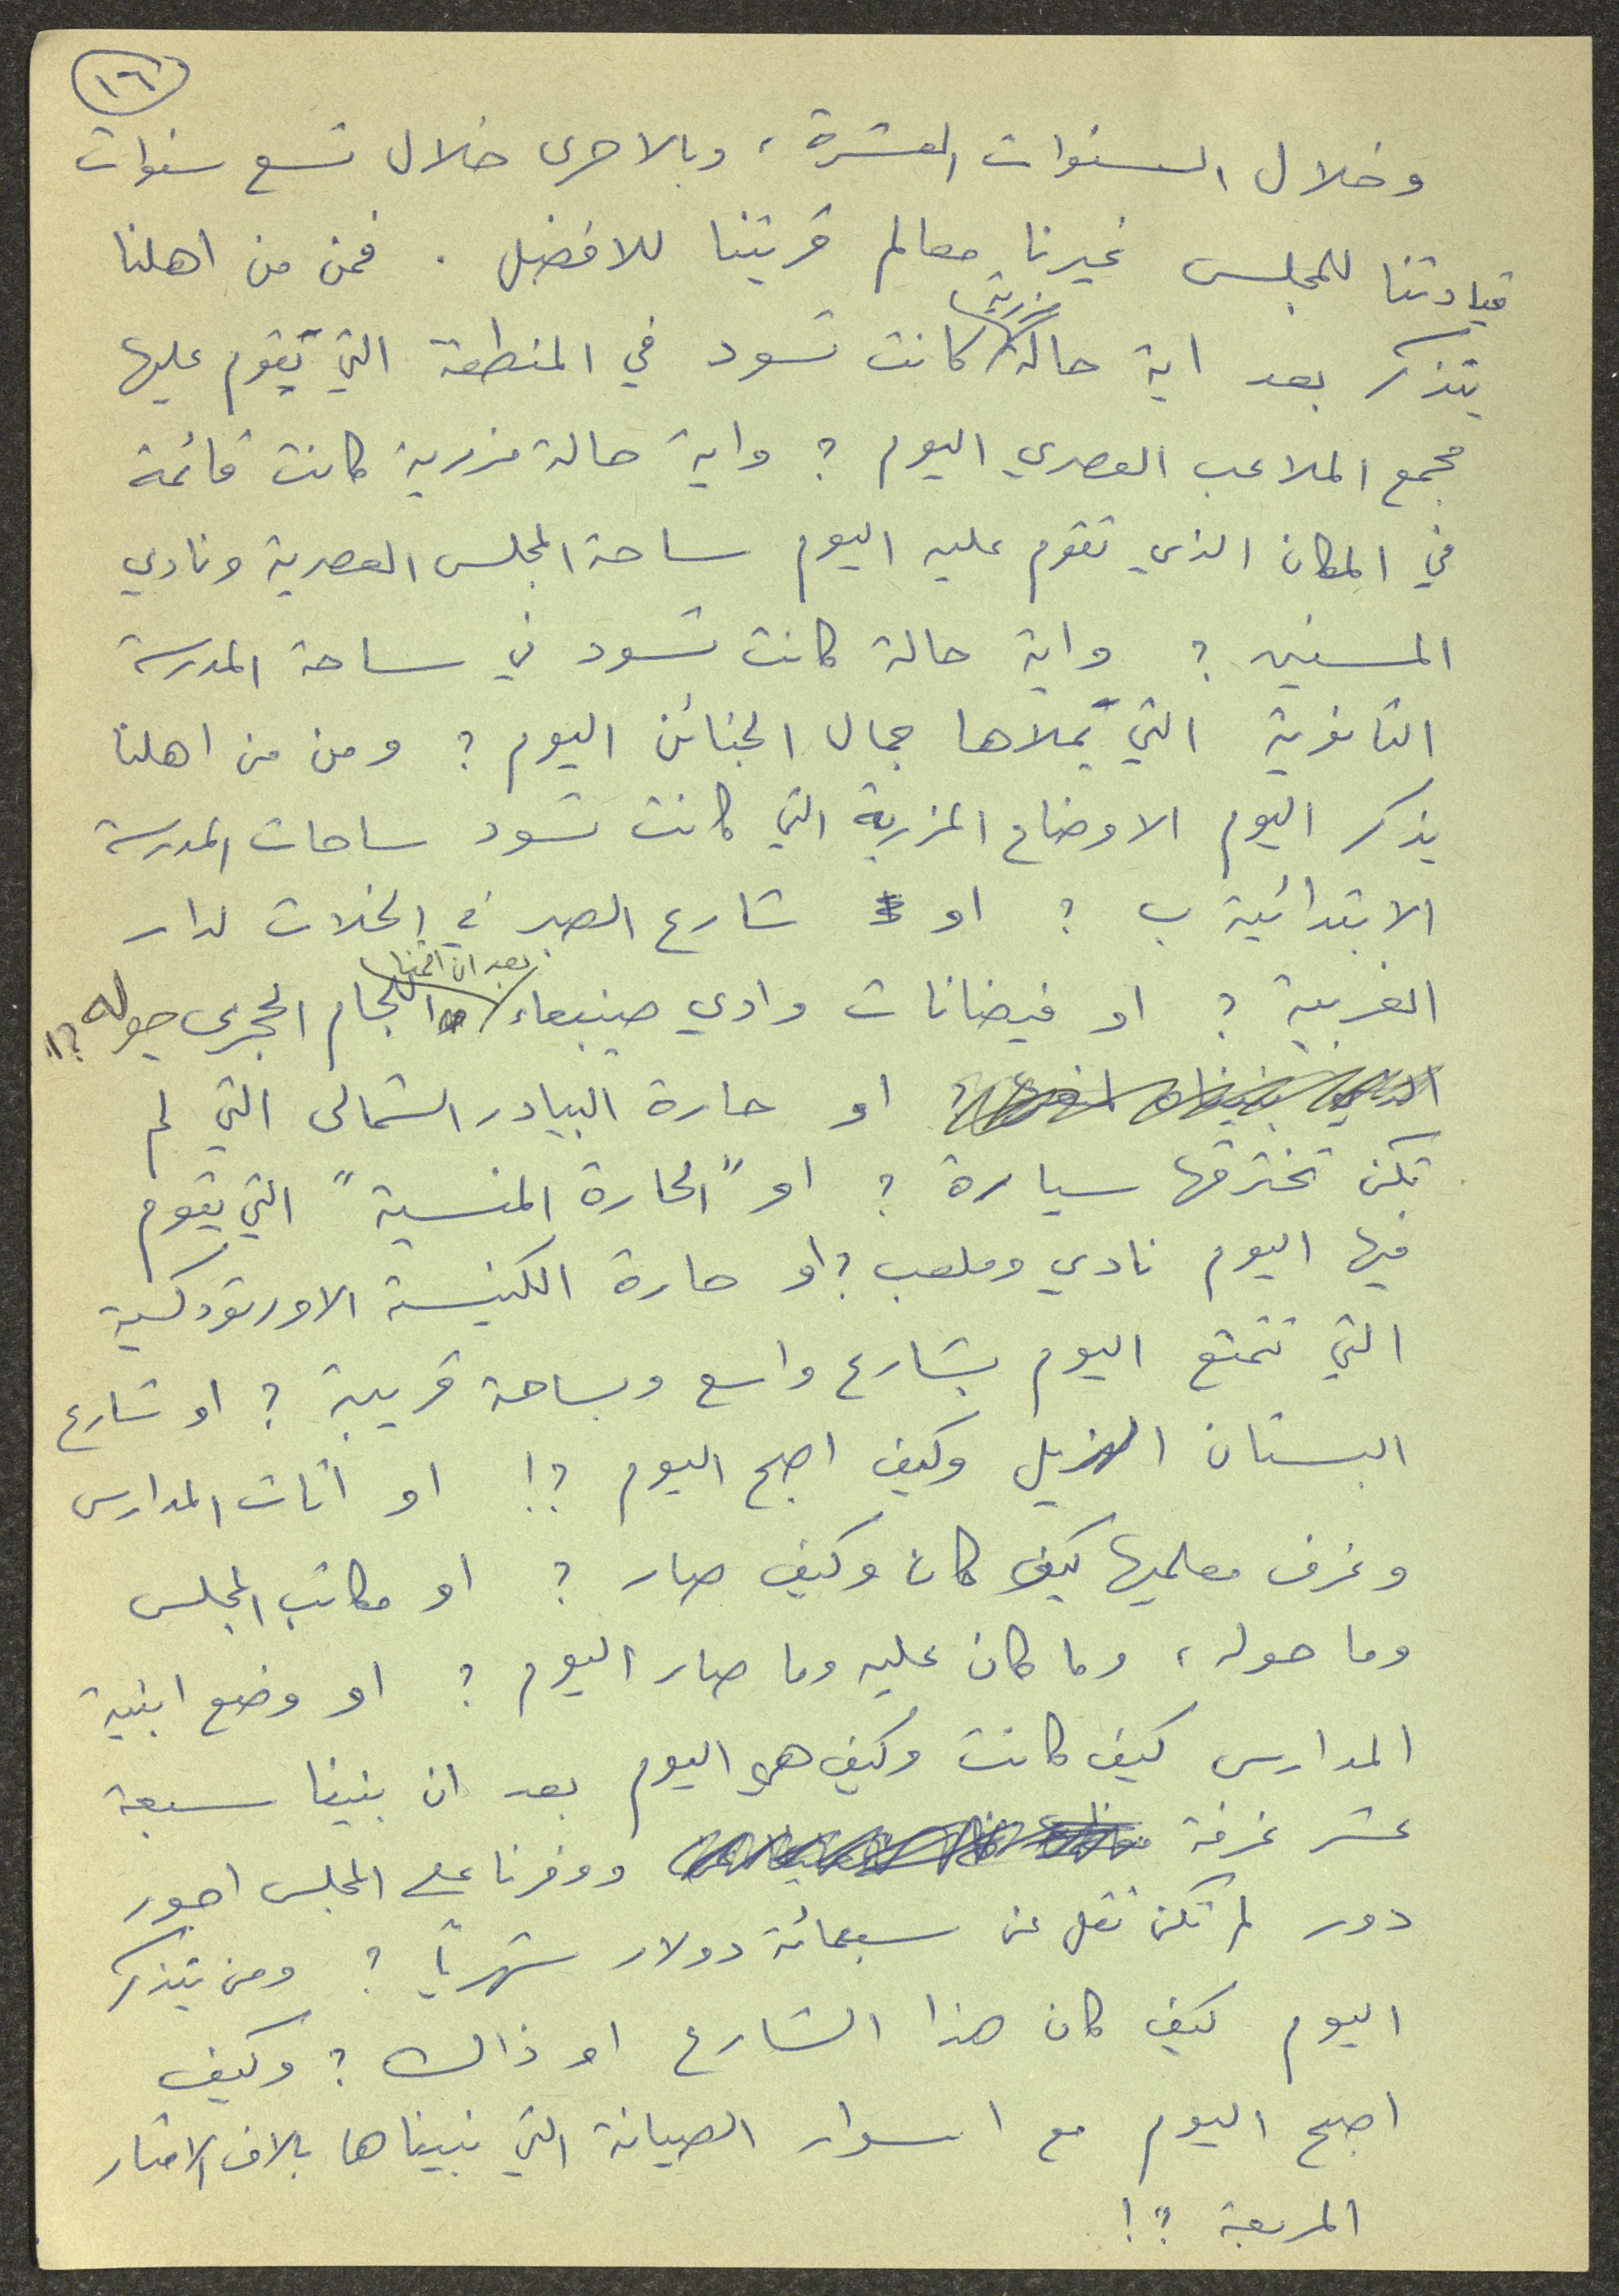 ١٦
وخلال السنوات العشرة، وبالاحرى خلال تسع سنوات
قيادتنا للمجلس غيرنا معالم قريتنا للافضل. فمن من اهلنا
يتذكر بعد اية حالة مزرية كانت تسود في المنطقة التي تقوم عليها
مجمع الملاعب العصري اليوم؟ واية حالة مزرية كانت قائمة
في المكان الذي تقوم عليه اليوم ساحة المجلس العصرية ونادي
المسنين؟ واية حالة كانت تسود في ساحة المدرسة
الثانوية التي يملاها جمال الجنائن اليوم؟ ومن من اهلنا
يذكر اليوم الاوضاع المزرية التي كانت تسود ساحات المدرسة
الابتدائية ب؟ او شارع الصبر في الخلات لدار
الغربية؟ او فيضانات وادي صنيبعاء بعد ان اقمنا اللجام الحجري حوله؟!
او حارة البيادر الشمالى التي لم
تكن تخترقها سيارة؟ او "الحارة المنسية" التي يقوم
فيها اليوم نادي وملعب؟ او حارة الكنيسة الاورثوذكسية
التي تتمتع اليوم بشارع واسع وبساحة قريبة؟ او شارع
البستان الهزيل وكيف اصبح اليوم؟! او اثاث المدارس
وغرف معلميها كيف كان وكيف صار؟ او مكاتب المجلس
وما حوله، وما كان عليه وما صار اليوم؟ او وضع ابنية
المدارس كيف كانت وكيف هي اليوم بعد ان بنينا سبعة
عشر غرفة ووفرنا على المجلس اجور
دور لم تكن تقل عن سبعمائة دولار شهرياً؟ ومن يتذكر
اليوم كيف كان هذا الشارع او ذالك؟ وكيف
اصبح اليوم مع اسوار الصيانة التي بنيناها بالاف الامتار
المربعة؟!